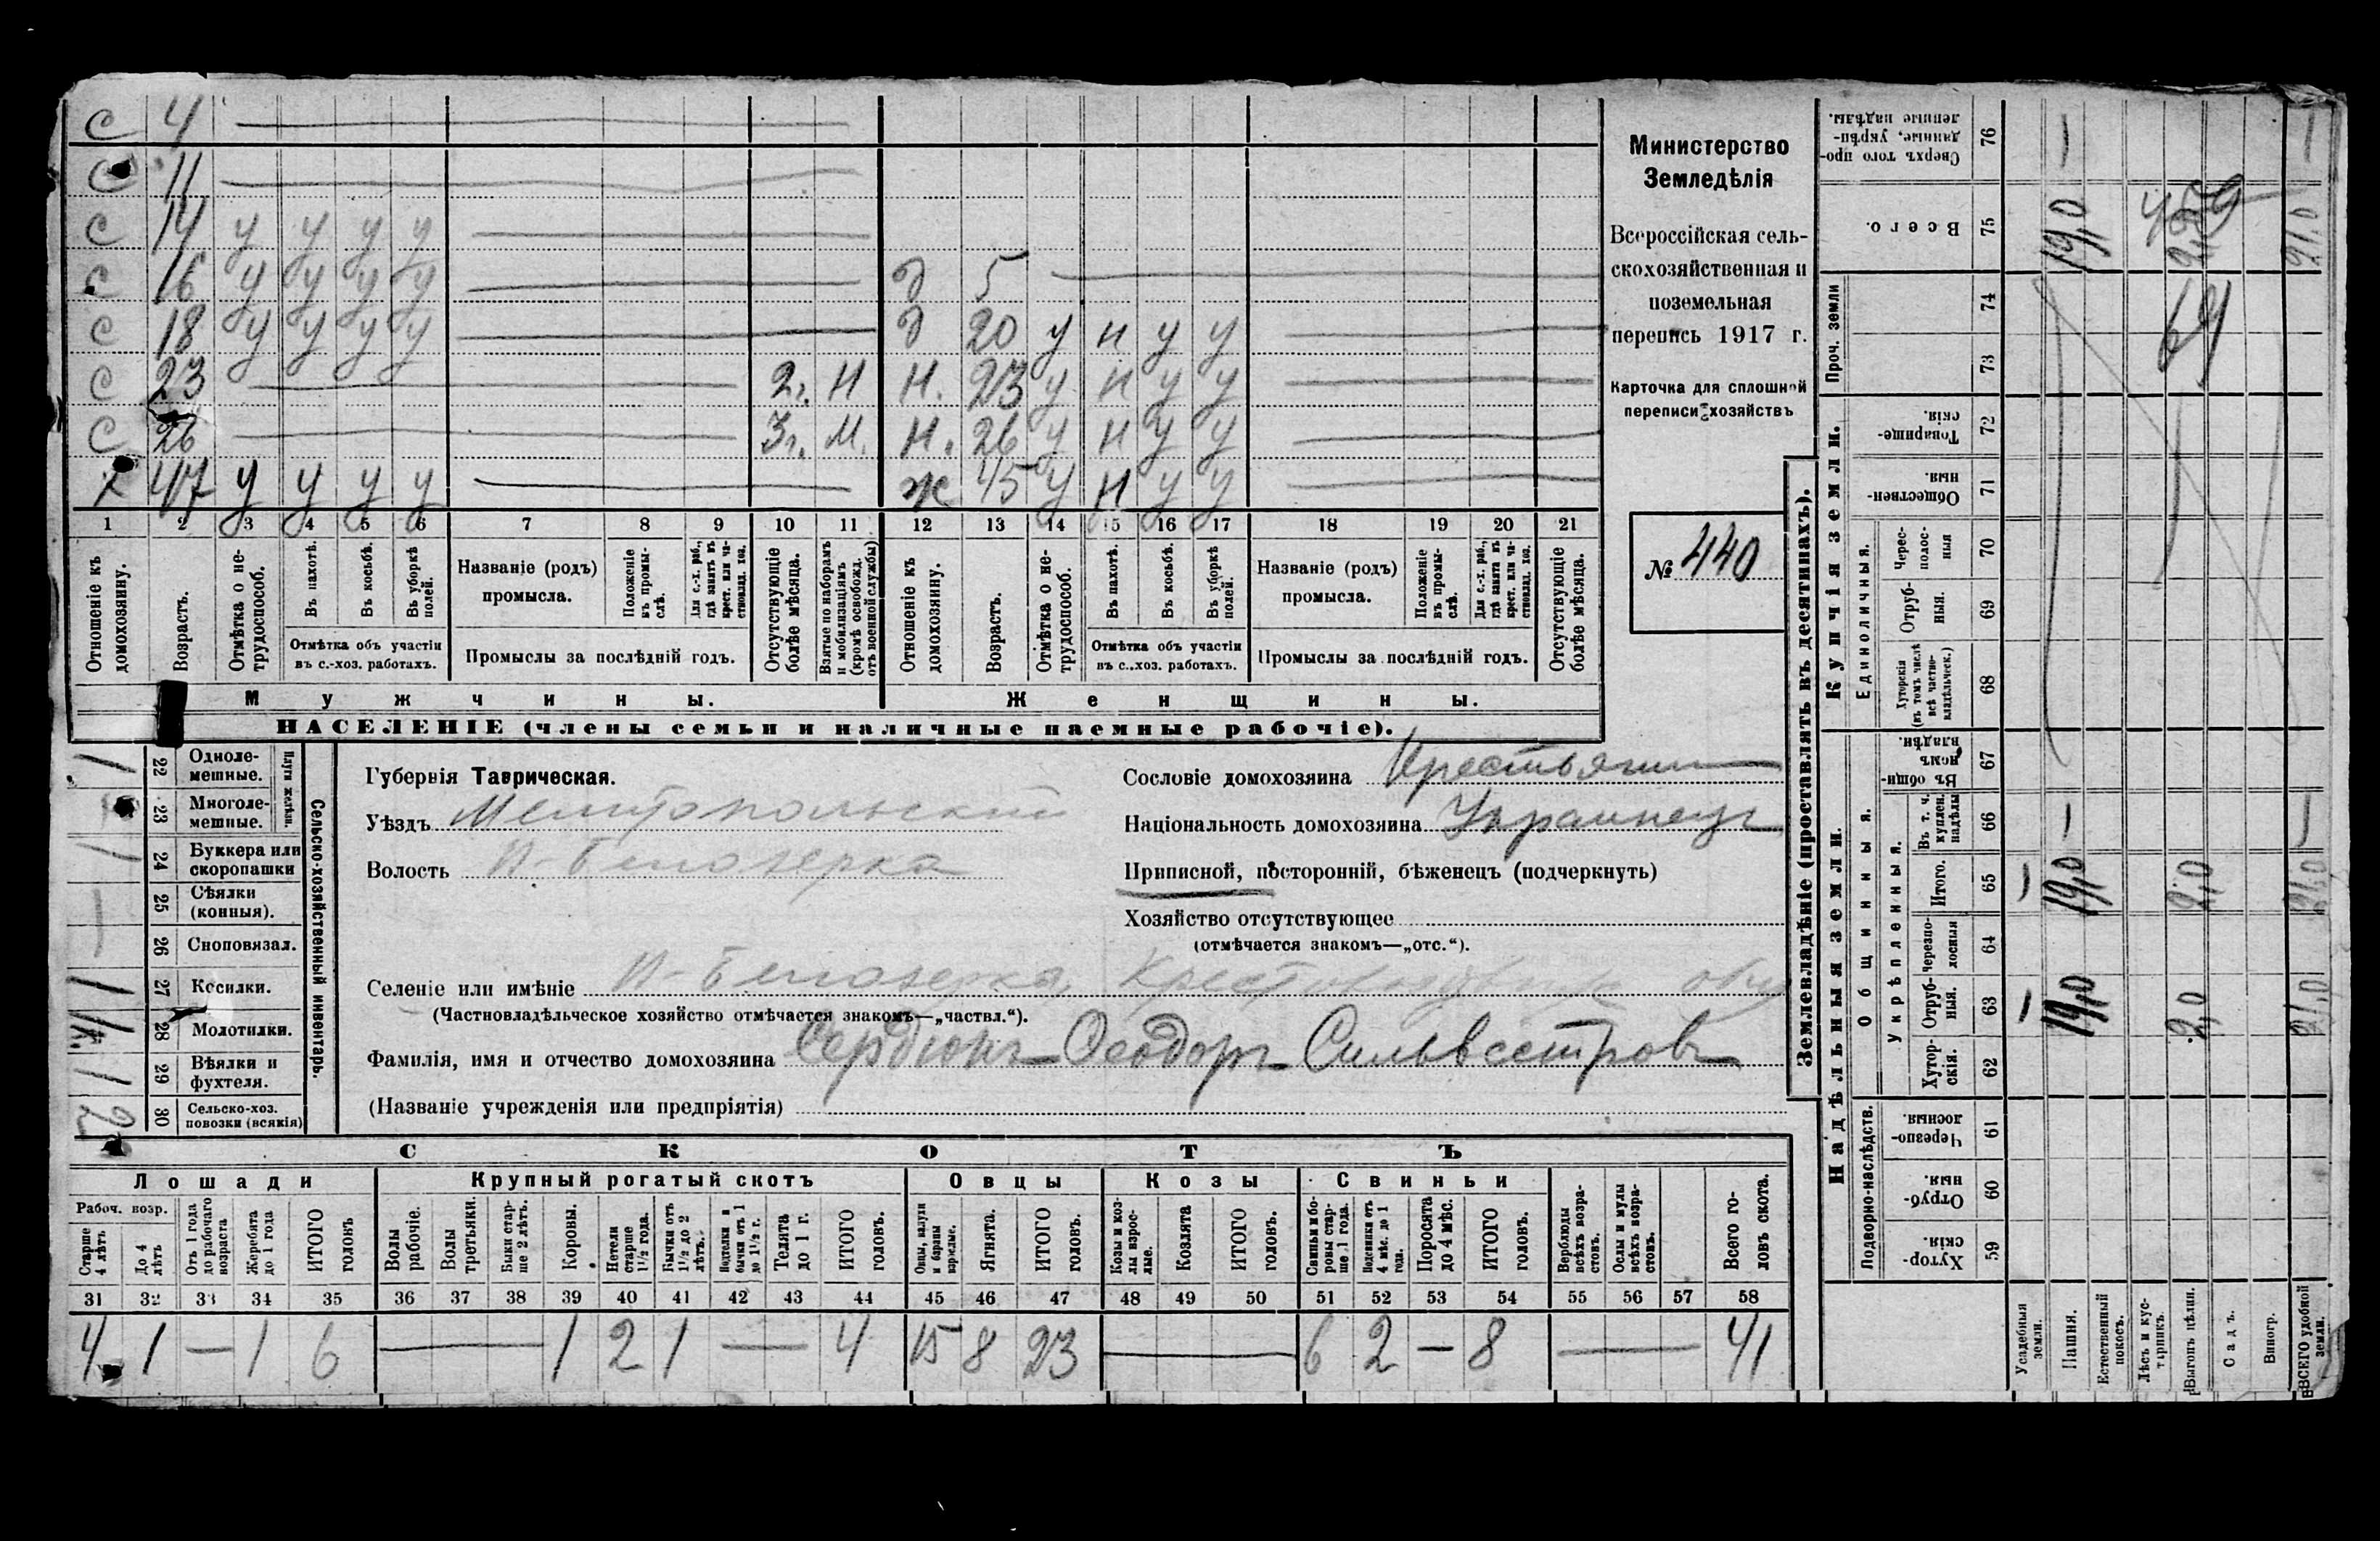 С 4
С 11
С 14 у у у у
С 16 у у у у д 5
С 18 у у у у д 20 у н у у
С 23 2г. Н Н. 23 у н у у
С 26 3г. М. Н. 26 у н у у
х 47 у у у у ж 45 у н у у
1 2 3 4 5 6 7 8 9 10 11 12 13 14 15 16 17 18 19 20 21
Отношеніе къ домохозяину.
Возрастъ.
Отмѣтка о не-трудоспособ.
Въ пахотѣ.
Въ косьбѣ.
Въ уборкѣ полей.
Отмѣтка объ участіи
въ с.-хоз. работахъ.
Названіе (родъ)
промысла.
Положеніе въ промы-слѣ.
Для с.-х. раб., гдѣ занятъ въ крест. или ча-стновлад. хоз.
Промыслы за послѣдній годъ.
Отсутствующіе болѣе мѣсяца.
Взятые по наборамъ и мобилизаціямъ (кромѣ освобожд. отъ военной службы)
Отношеніе къ домохозяину.
Возрастъ.
Отмѣтка о не-трудоспособ.
Въ пахотѣ.
Въ косьбѣ.
Въ уборкѣ полей.
Отмѣтка объ участіи
въ с.-хоз. работахъ.
Названіе (родъ)
промысла.
Положеніе въ промы-слѣ.
Для с.-х. раб., гдѣ занята въ крест. или ча-стновлад. хоз.
Промыслы за послѣдній годъ.
Отсутствующіе болѣе мѣсяца.
Мужчины.
Женщины.
НАСЕЛЕНІЕ (члены семьи и наличные наемные рабочіе).
Министерство
Земледѣлія
Всероссійская сель-
скохозяйственная и
поземельная
перепись 1917 г.
Карточка для сплошной
переписи хозяйствъ
№ 440
Сельско-хозяйственный инвентарь.
Плуги желѣзн.
22 Одноле-
мешные.
23 Многоле-
мешные.
24 Буккера или
скоропашки
25 Сѣялки
(конныя).
26 Сноповязал.
27 Косилки.
28 Молотилки.
29 Вѣялки и
фухтеля.
30 Сельско-хоз.
повозки (всякія)
Губернія Таврическая.
Уѣздъ Мелитопольский
Волость И-Белозерка
Селеніе или имѣніе И-Белозерка, Крестовоздвиж общ
(Частновладѣльческое хозяйство отмѣчается знакомъ—„частвл.“).
Фамилія, имя и отчество домохозяина Сердюкъ Ѳеодоръ Сильвестровъ
(Названіе учрежденія или предпріятія)
Сословіе домохозяина Крестьянин
Національность домохозяина Украинецъ
Приписной, посторонній, бѣженецъ (подчеркнуть)
Хозяйство отсутствующее
(отмѣчается знакомъ—„отс.“).
СКОТЪ
Лошади Крупный рогатый скотъ Овцы Козы Свиньи
Рабоч. возр.
Старше 4 лѣтъ
До 4 лѣтъ
Отъ 1 года до рабочаго возраста
Жеребята до 1 года
ИТОГО головъ
Волы рабочіе.
Волы третьяки.
Быки стар-ше 2 лѣтъ.
Коровы.
Нетели старше 1½ года.
Бычки отъ 1½ до 2 лѣтъ.
Подтелки и бычки отъ 1 до 1½ г.
Телята до 1 г.
ИТОГО головъ.
Овцы, валухи и бараны взрослые.
Ягнята.
ИТОГО головъ.
Козы и коз-лы взрос-лые.
Козлята
ИТОГО головъ.
Свиньи и бо-ровы стар-ше 1 года.
Подсвинки отъ 4 мѣс. до 1 года.
Поросята до 4 мѣс.
ИТОГО головъ.
Верблюды всѣхъ возра-стовъ.
Ослы и мулы всѣхъ возра-стовъ.
Всего го-ловъ скота.
31 32 33 34 35 36 37 38 39 40 41 42 43 44 45 46 47 48 49 50 51 52 53 54 55 56 57 58
4 1 — 1 6 — 1 2 1 — 4 15 8 23 — 6 2 — 8 — 41
Землевладѣніе (проставлять въ десятинахъ).
Надѣльныя земли.
Купчія земли.
Проч. земли
Подворно-наслѣдств.
Общинныя.
Укрѣпленныя.
Единоличныя.
Сверхъ того про-данные, укрѣп-ленные надѣлы. 76
Всего. 75 19,0 21.0
74
73
Товарище-скія. 72
Обществен-ныя. 71
Черес-полос-ныя 70
Отруб-ныя. 69
Хуторскія (въ томъ числѣ всѣ частно-владѣльческ.) 68
Въ общи-номъ владѣн. 67
Въ т. ч. куплен. надѣлы 66
Итого. 65 19,0 2,0 21,0
Черезпо-лосныя 64
Отруб-ныя. 63 19,0 2,0 21,0
Хутор-скія. 62
Черезпо-лосныя. 61
Отруб-ныя. 60
Хутор-скія. 59
Усадебныя земли.
Пашня.
Естественный покосъ.
Лѣсъ и кус-тарникъ.
Выгонъ цѣлин.
Садъ.
Виногр.
ВСЕГО удобной земли.